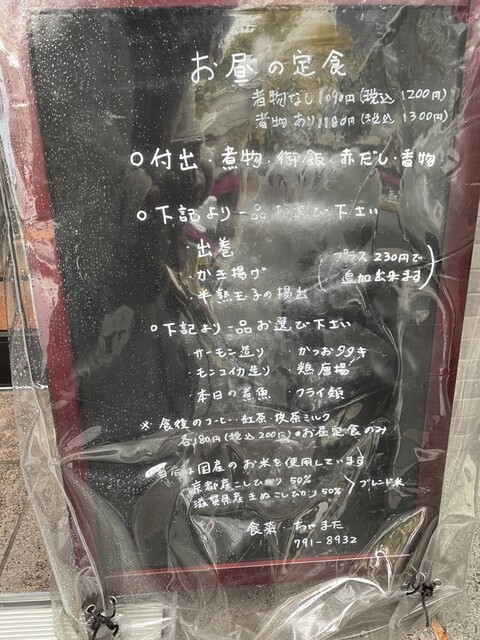 お昼の定食
煮物なし1090円(税込 1200円)
煮物あり1180円(税込 1300円)
○付出・煮物・御飯・赤だし・香物
○下記より一品お選び下さい
・出巻
・かき揚げ
・半熟玉子の揚出
(プラス230円で
追加出来ます)
○下記より一品お選び下さい
サーモン造り ・かつおタタキ
・モンコイカ造り ・鶏唐揚
本日の煮魚 フライ類
※食後のコーヒー・紅茶・抹茶ミルク
各180円(税込200円)※お昼定食のみ
当店は国産のお米を使用しています
京都産こしひかり 50%
滋賀県産きぬこしひかり50% >ブレンド米
食菜・ちゃまた
791-8932